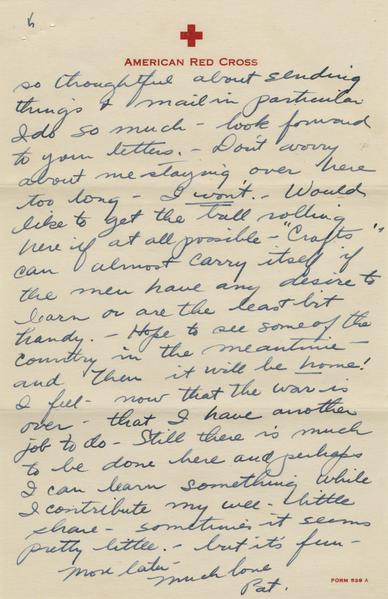 6
AMERICAN RED CROSS
so thoughtful about sending
things & mail in particular
I do so much - look forward
to your letters. - Don't worry
about me staying over here
too long - I won't. - Would
like to get the ball rolling
here if at all possible - "Crafts"
can almost carry itself if
the men have any desire to
learn or are the least bit
handy. - Hope to see some of the
country in the meantime -
and then it will be home!
I feel - now that the war is
over - that I have another
job to do - Still there is much
to be done here and perhaps
I can learn something while
I contribute my wee - little
share - sometimes it seems
pretty little. - but it's fun -
More later -
much love
Pat.
FORM 539 A